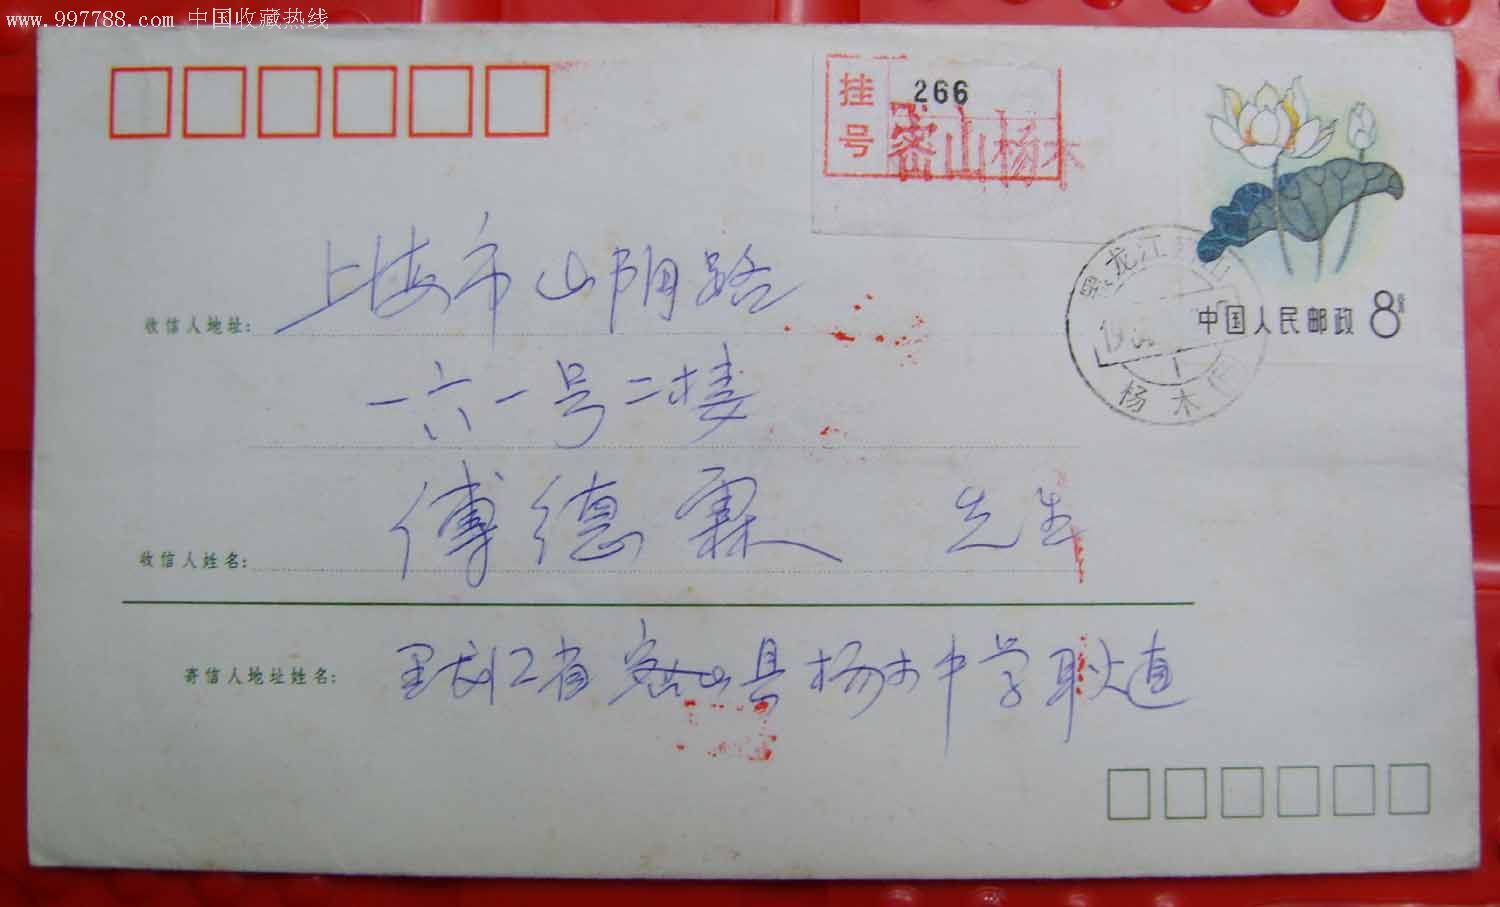 www.997788.com 中国收藏热线
挂号 266
密山杨木
中国人民邮政 8分
黑龙江密山
杨木
收信人地址: 上海市山阴路
一六一号二楼
收信人姓名: 傅德霖 先生
寄信人地址姓名: 黑龙江省密山县杨木中学耿直